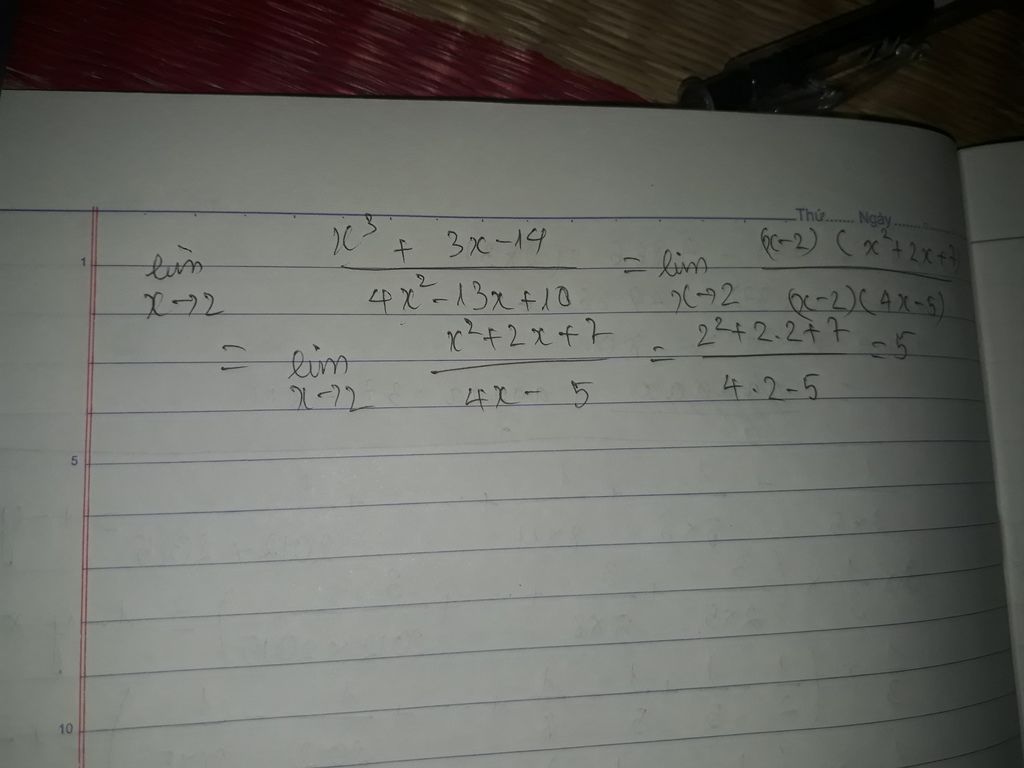 Thứ....... Ngày.......
1 lim x→2 x³ + 3x-14 / 4x²-13x+10 = lim x→2 (x-2)(x²+2x+7) / (x-2)(4x-5)
= lim x→2 x²+2x+7 / 4x- 5 = 2²+2.2+7 / 4.2-5 =5
5
10